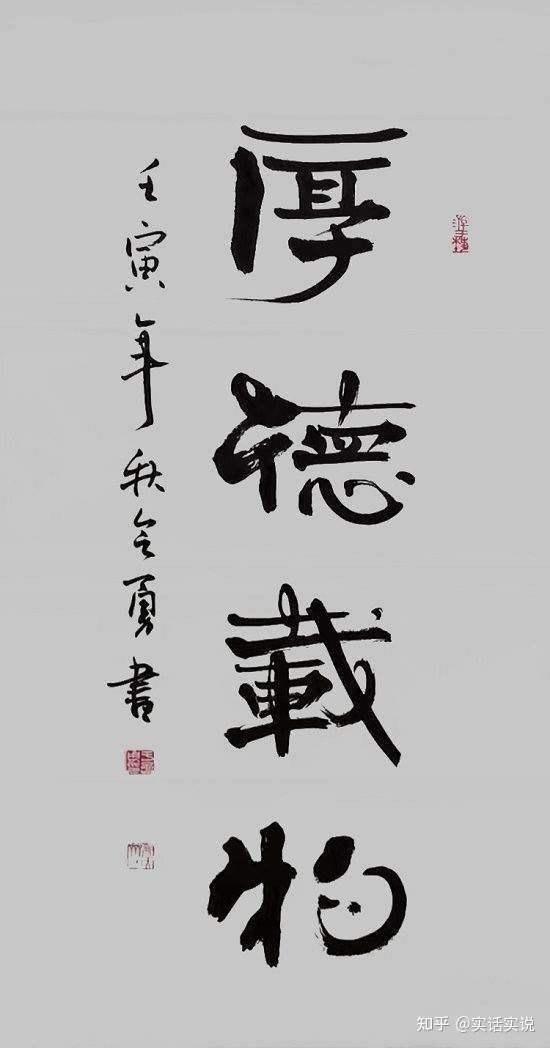 厚德載物
壬寅年秋令勇書
知乎 @实话实说